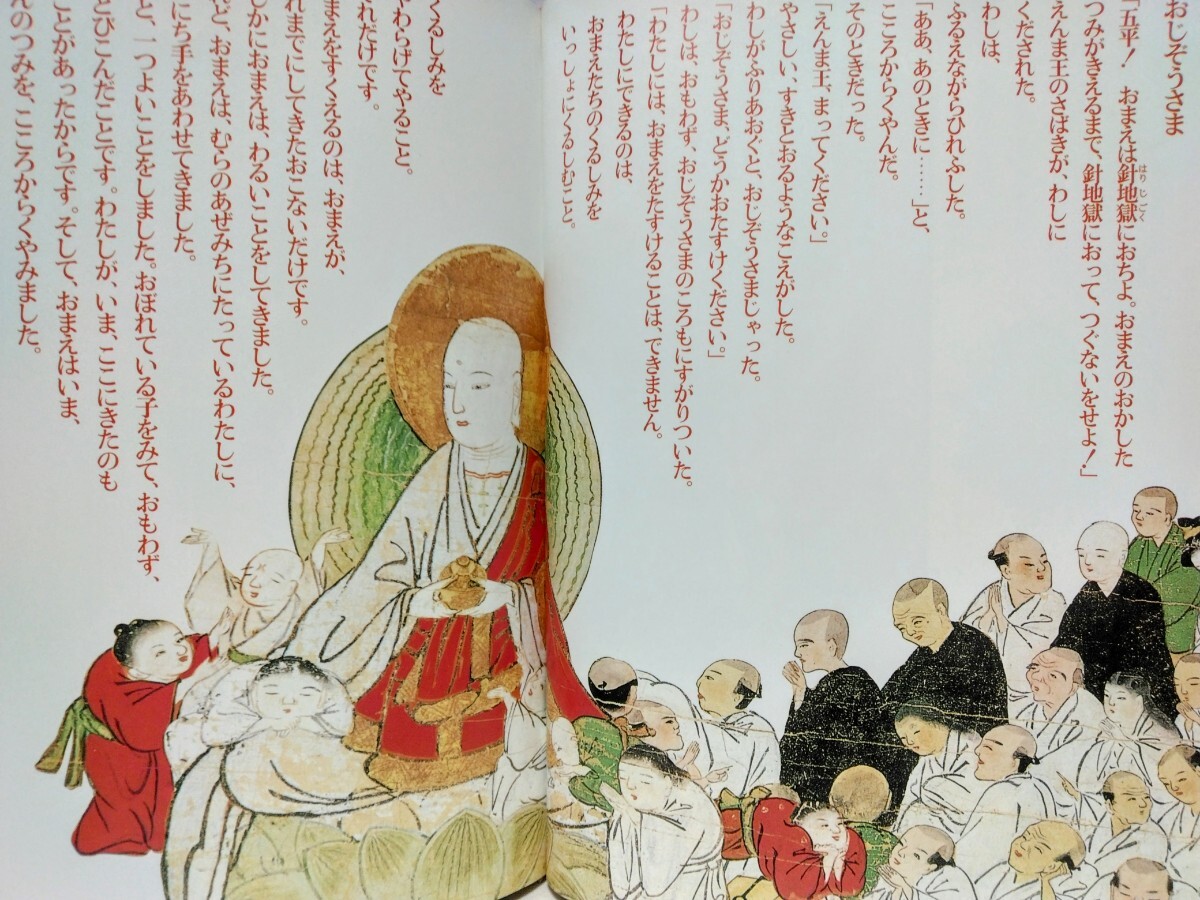 おじぞうさま
「五平！　おまえは針地獄におちよ。おまえのおかした
はりじごく
つみがきえるまで、針地獄におって、つぐないをせよ！」
えんま王のさばきが、わしに
くだされた。
わしは、
ふるえながらひれふした。
「ああ、あのときに……」と、
こころからくやんだ。
そのときだった。
「えんま王、まってください。」
やさしい、すきとおるようなこえがした。
わしがふりあおぐと、おじぞうさまじゃった。
「おじぞうさま、どうかおたすけください。」
わしは、おもわず、おじぞうさまのころもにすがりついた。
「わたしには、おまえをたすけることは、できません。
わたしにできるのは、
おまえたちのくるしみを
いっしょにくるしむこと。
くるしみを
やわらげてやること。
れだけです。
まえをすくえるのは、おまえが、
れまでにしてきたおこないだけです。
しかにおまえは、わるいことをしてきました。
ど、おまえは、むらのあぜみちにたっているわたしに、
にち手をあわせてきました。
と、一つよいことをしました。おぼれている子をみて、おもわず、
とびこんだことです。わたしが、いま、ここにきたのも
ことがあったからです。そして、おまえはいま、
んのつみを、こころからくやみました。